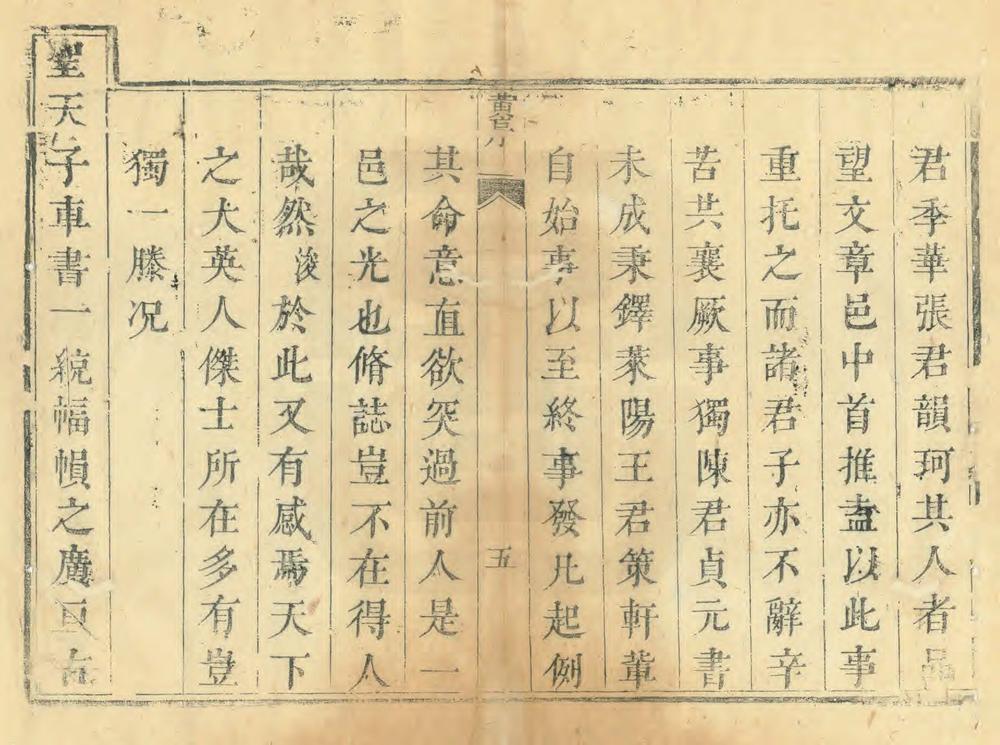 君季華張君韻珂其人者品
望文章邑中首推盍以此事
重托之而諸君子亦不辭辛
苦共襄厥事獨陳君貞元書
未成秉鐸萊陽王君策軒輩
自始事以至終事發凡起例
黃省序
五
其命意直欲突過前人是一
邑之光也脩誌豈不在得人
哉然浚於此又有感焉天下
之大英人傑士所在多有豈
獨一滕况
聖天子車書一統幅幀之廣亘古